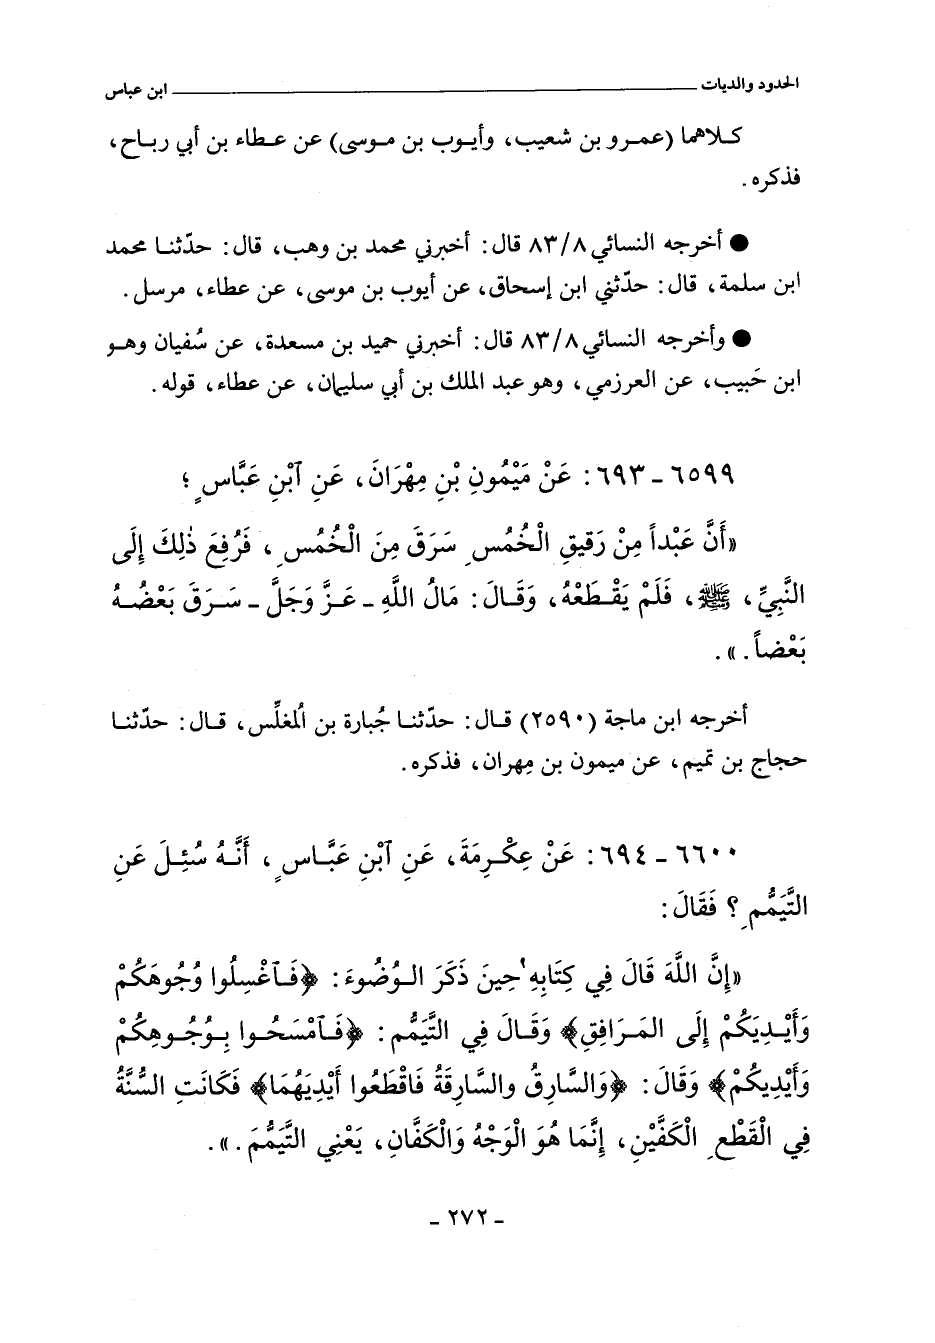 الحدود والديات ابن عباس
كلاهما (عمرو بن شعيب، وأيوب بن موسى) عن عطاء بن أبي رباح،
فذكره.
● أخرجه النسائي ٨/ ٨٣ قال: أخبرني محمد بن وهب، قال: حدّثنا محمد
ابن سلمة، قال: حدّثني ابن إسحاق، عن أيوب بن موسى، عن عطاء، مرسل.
● وأخرجه النسائي ٨/ ٨٣ قال: أخبرني حميد بن مسعدة، عن سُفيان وهو
ابن حَبيب، عن العرزمي، وهو عبد الملك بن أبي سليمان، عن عطاء، قوله.
٦٥٩٩ - ٦٩٣: عَنْ مَيْمُونِ بْنِ مِهْرَانَ، عَنِ آبْنِ عَبَّاسٍ؛
«أَنَّ عَبْداً مِنْ رَقيقِ الْخُمُسِ سَرَقَ مِنَ الْخُمُسِ، فَرُفِعَ ذٰلِكَ إِلَى
النَّبِيِّ، ﷺ، فَلَمْ يَقْطَعْهُ، وَقَالَ: مَالُ اللَّهِ - عَزَّ وَجَلَّ - سَرَقَ بَعْضُهُ
بَعْضاً.».
أخرجه ابن ماجة (٢٥٩٠) قال: حدّثنا جُبارة بن المُغلِّس، قال: حدّثنا
حجاج بن تميم، عن ميمون بن مِهران، فذكره.
٦٦٠٠ - ٦٩٤: عَنْ عِكْرِمَةَ، عَنِ آبْنِ عَبَّاسٍ، أَنَّهُ سُئِلَ عَنِ
التَّيَمُّمِ؟ فَقَالَ:
«إِنَّ اللَّهَ قَالَ فِي كِتَابِهِ حِينَ ذَكَرَ الوُضُوءَ: ﴿فَآغْسِلُوا وُجُوهَكُمْ
وَأَيْدِيَكُمْ إِلَى المَرَافِقِ﴾ وَقَالَ فِي التَّيَمُّمِ: ﴿فَآمْسَحُوا بِوُجُوهِكُمْ
وَأَيْدِيكُمْ﴾ وَقَالَ: ﴿وَالسَّارِقُ والسَّارِقَةُ فَاقْطَعُوا أَيْدِيَهُمَا﴾ فَكَانَتِ السُّنَّةُ
فِي الْقَطْعِ الْكَفَّيْنِ، إِنَّمَا هُوَ الْوَجْهُ وَالْكَفَّانِ، يَعْنِي التَّيَمُّمَ.».
- ٢٧٢ -